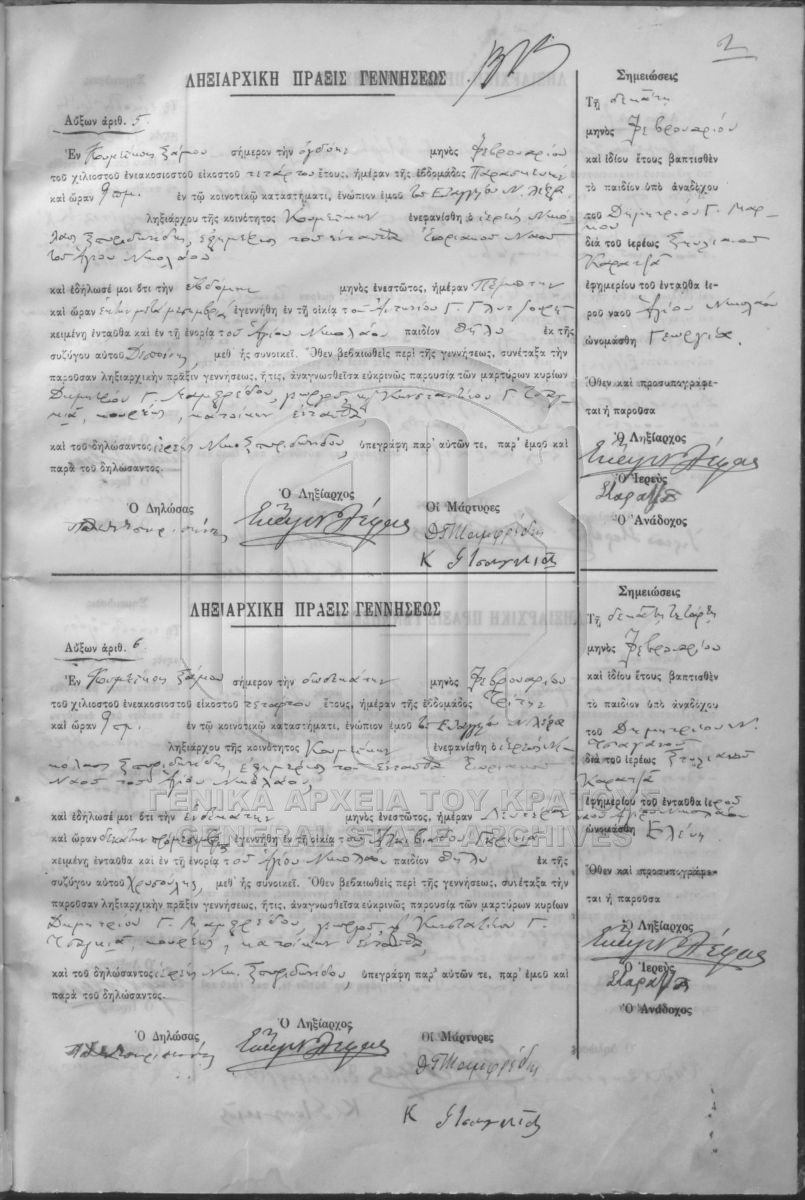 2
ΛΗΞΙΑΡΧΙΚΗ ΠΡΑΞΙΣ ΓΕΝΝΗΣΕΩΣ
Αὔξων ἀριθ. 5
Ἐν Κουμεΐκῃ Σάμου σήμερον τὴν ὀγδόην μηνὸς Φεβρουαρίου
τοῦ χιλιοστοῦ ἐνεακοσιοστοῦ εἰκοστοῦ τετάρτου ἔτους, ἡμέραν τῆς ἑβδομάδος Παρασκευὴν
καὶ ὥραν 9 πμ. ἐν τῷ κοινοτικῷ καταστήματι, ἐνώπιον ἐμοῦ τοῦ Εὐαγγέλου Ν.
ληξιάρχου τῆς κοινότητος ἐνεφανίσθη ὁ ἱερεὺς Νικό-
λαος Σπυριδωνίδης, ἐφημέριος τοῦ ἐνταῦθα Ἐνοριακοῦ Ναοῦ
τοῦ Ἁγίου Νικολάου
καὶ ἐδήλωσέ μοι ὅτι τὴν ἑβδόμην μηνὸς ἐνεστῶτος, ἡμέραν Πέμπτην
καὶ ὥραν ἕκτην μετὰ μεσημβρίαν ἐγεννήθη ἐν τῇ οἰκίᾳ τοῦ Ἀντωνίου Γ.
κειμένῃ ἐνταῦθα καὶ ἐν τῇ ἐνορίᾳ τοῦ Ἁγίου Νικολάου παιδίον θῆλυ ἐκ τῆς
συζύγου αὐτοῦ Δεσποίνης, μεθ' ἧς συνοικεῖ. Ὅθεν βεβαιωθεὶς περὶ τῆς γεννήσεως, συνέταξα τὴν
παροῦσαν ληξιαρχικὴν πρᾶξιν γεννήσεως, ἥτις, ἀναγνωσθεῖσα εὐκρινῶς παρουσίᾳ τῶν μαρτύρων κυρίων
Δημητρίου Γ. Μαμφρέδου, γεωργοῦ, καὶ Κωνσταντίνου Γ. Τσαγ-
κιᾶ, κουρέως, κατοίκων ἐνταῦθα,
καὶ τοῦ δηλώσαντος ἱερέως Νικ. Σπυριδωνίδου, ὑπεγράφη παρ' αὐτῶν τε, παρ' ἐμοῦ καὶ
παρὰ τοῦ δηλώσαντος.
Ὁ Δηλώσας
Ὁ Ληξίαρχος
Οἱ Μάρτυρες
Δ Γ Μαμφρέδης
Κ Γ Τσαγκιᾶς
Σημειώσεις
Τῇ δεκάτῃ
μηνὸς Φεβρουαρίου
καὶ ἰδίου ἔτους βαπτισθὲν
τὸ παιδίον ὑπὸ ἀναδόχου
τοῦ Δημητρίου Γ. Μαρ-
κου
διὰ τοῦ ἱερέως Στυλιανοῦ
Καρατζᾶ
ἐφημερίου τοῦ ἐνταῦθα ἱε-
ροῦ ναοῦ Ἁγίου Νικολάου
ὠνομάσθη Γεωργία.
Ὅθεν καὶ προσυπογράφε-
ται ἡ παροῦσα
Ὁ Ληξίαρχος
Ὁ Ἱερεὺς
Ὁ Ἀνάδοχος
ΛΗΞΙΑΡΧΙΚΗ ΠΡΑΞΙΣ ΓΕΝΝΗΣΕΩΣ
Αὔξων ἀριθ. 6
Ἐν Κουμεΐκῃ Σάμου σήμερον τὴν δωδεκάτην μηνὸς Φεβρουαρίου
τοῦ χιλιοστοῦ ἐνεακοσιοστοῦ εἰκοστοῦ τετάρτου ἔτους, ἡμέραν τῆς ἑβδομάδος Τρίτην
καὶ ὥραν 9 πμ. ἐν τῷ κοινοτικῷ καταστήματι, ἐνώπιον ἐμοῦ τοῦ Εὐαγγέλου Ν.
ληξιάρχου τῆς κοινότητος ἐνεφανίσθη ὁ ἱερεὺς Νι-
κόλαος Σπυριδωνίδης, ἐφημέριος τοῦ ἐνταῦθα Ἐνοριακοῦ
Ναοῦ τοῦ Ἁγίου Νικολάου,
καὶ ἐδήλωσέ μοι ὅτι τὴν ἑνδεκάτην μηνὸς ἐνεστῶτος, ἡμέραν Δευτέραν
καὶ ὥραν δεκάτην πρὸ μεσημβρίας ἐγεννήθη ἐν τῇ οἰκίᾳ τοῦ Ἀλκιβιάδου
κειμένῃ ἐνταῦθα καὶ ἐν τῇ ἐνορίᾳ τοῦ Ἁγίου Νικολάου παιδίον θῆλυ ἐκ τῆς
συζύγου αὐτοῦ Χρυσούλης, μεθ' ἧς συνοικεῖ. Ὅθεν βεβαιωθεὶς περὶ τῆς γεννήσεως, συνέταξα τὴν
παροῦσαν ληξιαρχικὴν πρᾶξιν γεννήσεως, ἥτις, ἀναγνωσθεῖσα εὐκρινῶς παρουσίᾳ τῶν μαρτύρων κυρίων
Δημητρίου Γ. Μαμφρέδου, γεωργοῦ, καὶ Κωνσταντίνου Γ.
Τσαγκιᾶ, κουρέως, κατοίκων ἐνταῦθα,
καὶ τοῦ δηλώσαντος ἱερέως Νικ. Σπυριδωνίδου, ὑπεγράφη παρ' αὐτῶν τε, παρ' ἐμοῦ καὶ
παρὰ τοῦ δηλώσαντος.
Ὁ Δηλώσας
Ὁ Ληξίαρχος
Οἱ Μάρτυρες
Δ Γ Μαμφρέδης
Κ Γ Τσαγκιᾶς
Σημειώσεις
Τῇ δεκάτῃ τετάρτῃ
μηνὸς Φεβρουαρίου
καὶ ἰδίου ἔτους βαπτισθὲν
τὸ παιδίον ὑπὸ ἀναδόχου
τοῦ Δημητρίου Ν.
Τσαγανοῦ
διὰ τοῦ ἱερέως Στυλιανοῦ
Καρατζᾶ
ἐφημερίου τοῦ ἐνταῦθα ἱεροῦ
ναοῦ Ἁγίου Νικολάου
ὠνομάσθη Ἑλένη
Ὅθεν καὶ προσυπογράφε-
ται ἡ παροῦσα
Ὁ Ληξίαρχος
Ὁ Ἱερεὺς
Ὁ Ἀνάδοχος
ΓΕΝΙΚΑ ΑΡΧΕΙΑ ΤΟΥ ΚΡΑΤΟΥΣ
GENERAL STATE ARCHIVES